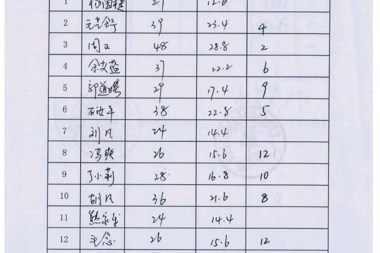 1 21 12.6
2 39 23.4 4
3 周工 48 28.8 2
4 37 22.2 6
5 29 17.4 9
6 38 22.8 5
7 刘凡 24 14.4
8 冯爽 26 15.6 12
9 丁小莉 28 16.8 10
10 胡凡 36 21.6 8
11 24 14.4
12 毛念 26 15.6 12